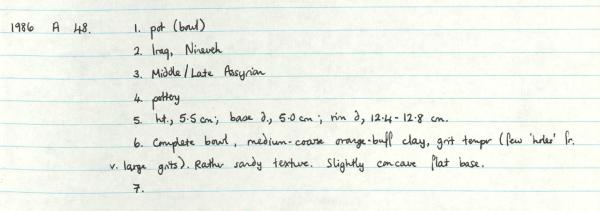 1986 A 48. 1. pot (bowl)
2. Iraq, Nineveh
3. Middle/Late Assyrian
4. pottery
5. ht., 5.5 cm; base d, 5.0 cm; rim d, 12.4 - 12.8 cm.
6. Complete bowl, medium-coarse orange-buff clay, grit temper (few 'holes' fr.
v. large grits). Rather sandy texture. Slightly concave flat base.
7.